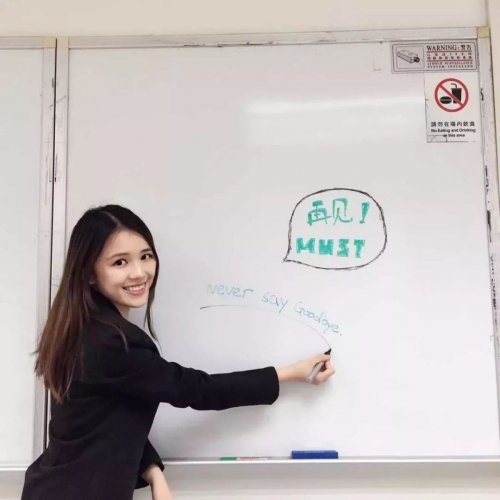 WARNING: 警告
請勿在場內飲食
No Eating and Drinking
in this area
再见！
MUST
Never say Goodbye.